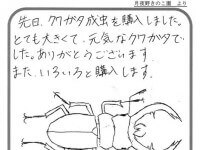 月夜野きのこ園 より
先日、クワガタ成虫を購入しました。
とても大きくて、元気なクワガタで
した。ありがとうございます。
また、いろいろと購入します。